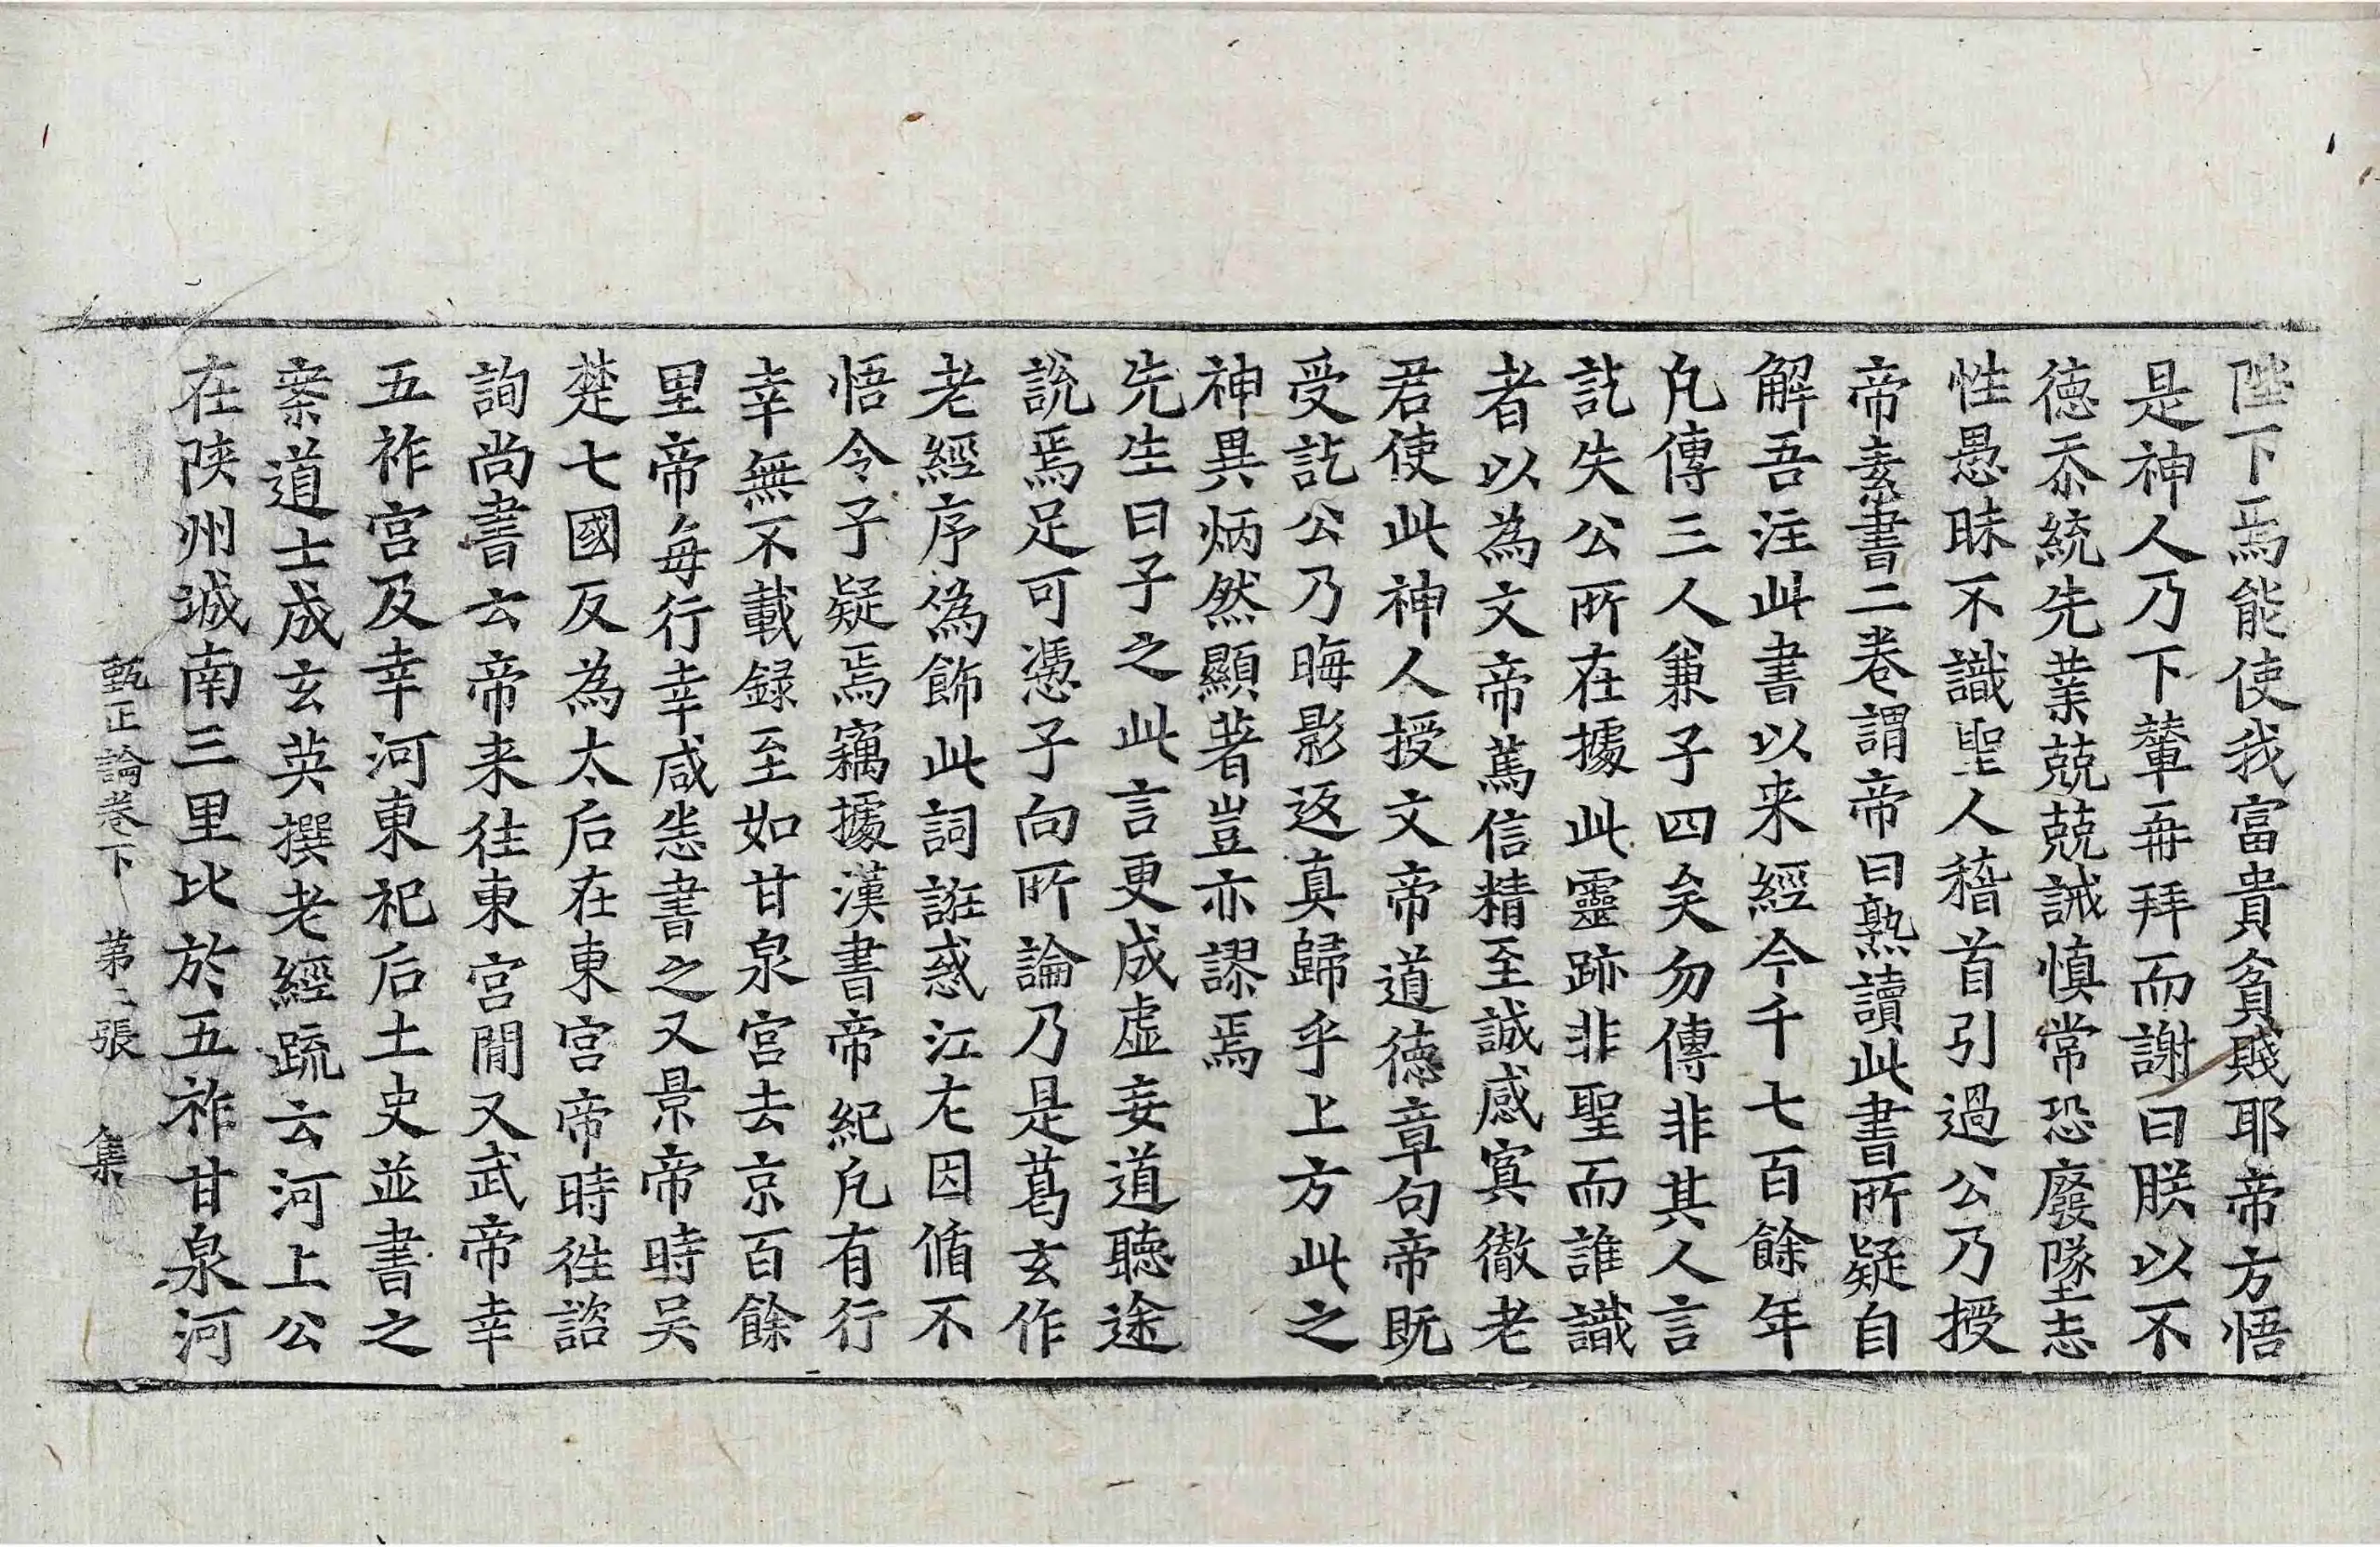 陛下焉能使我富貴貧賤耶帝方悟
是神人乃下輦再拜而謝曰朕以不
德忝統先業兢兢誡慎常恐廢墜志
性愚昧不識聖人稽首引過公乃授
帝素書二卷謂帝曰熟讀此書所疑自
解吾注此書以来經今千七百餘年
凡傳三人兼子四矣勿傳非其人言
訖失公所在據此靈跡非聖而誰識
者以為文帝篤信精至誠感冥徹老
君使此神人授文帝道德章句帝既
受訖公乃晦影返真歸乎上方此之
神異炳然顯著豈亦謬焉
先生曰子之此言更成虛妄道聽途
說焉足可憑子向所論乃是葛玄作
老經序偽飾此詞誑惑江左因循不
悟令子疑焉竊據漢書帝紀凡有行
幸無不載録至如甘泉宮去京百餘
里帝每行幸咸悉書之又景帝時吴
楚七國反為太后在東宮帝時徃諮
詢尚書云帝来往東宮間又武帝幸
五祚宮及幸河東祀后土史並書之
案道士成玄英撰老經疏云河上公
在陝州城南三里比於五祚甘泉河
甄正論卷下 第二張 集